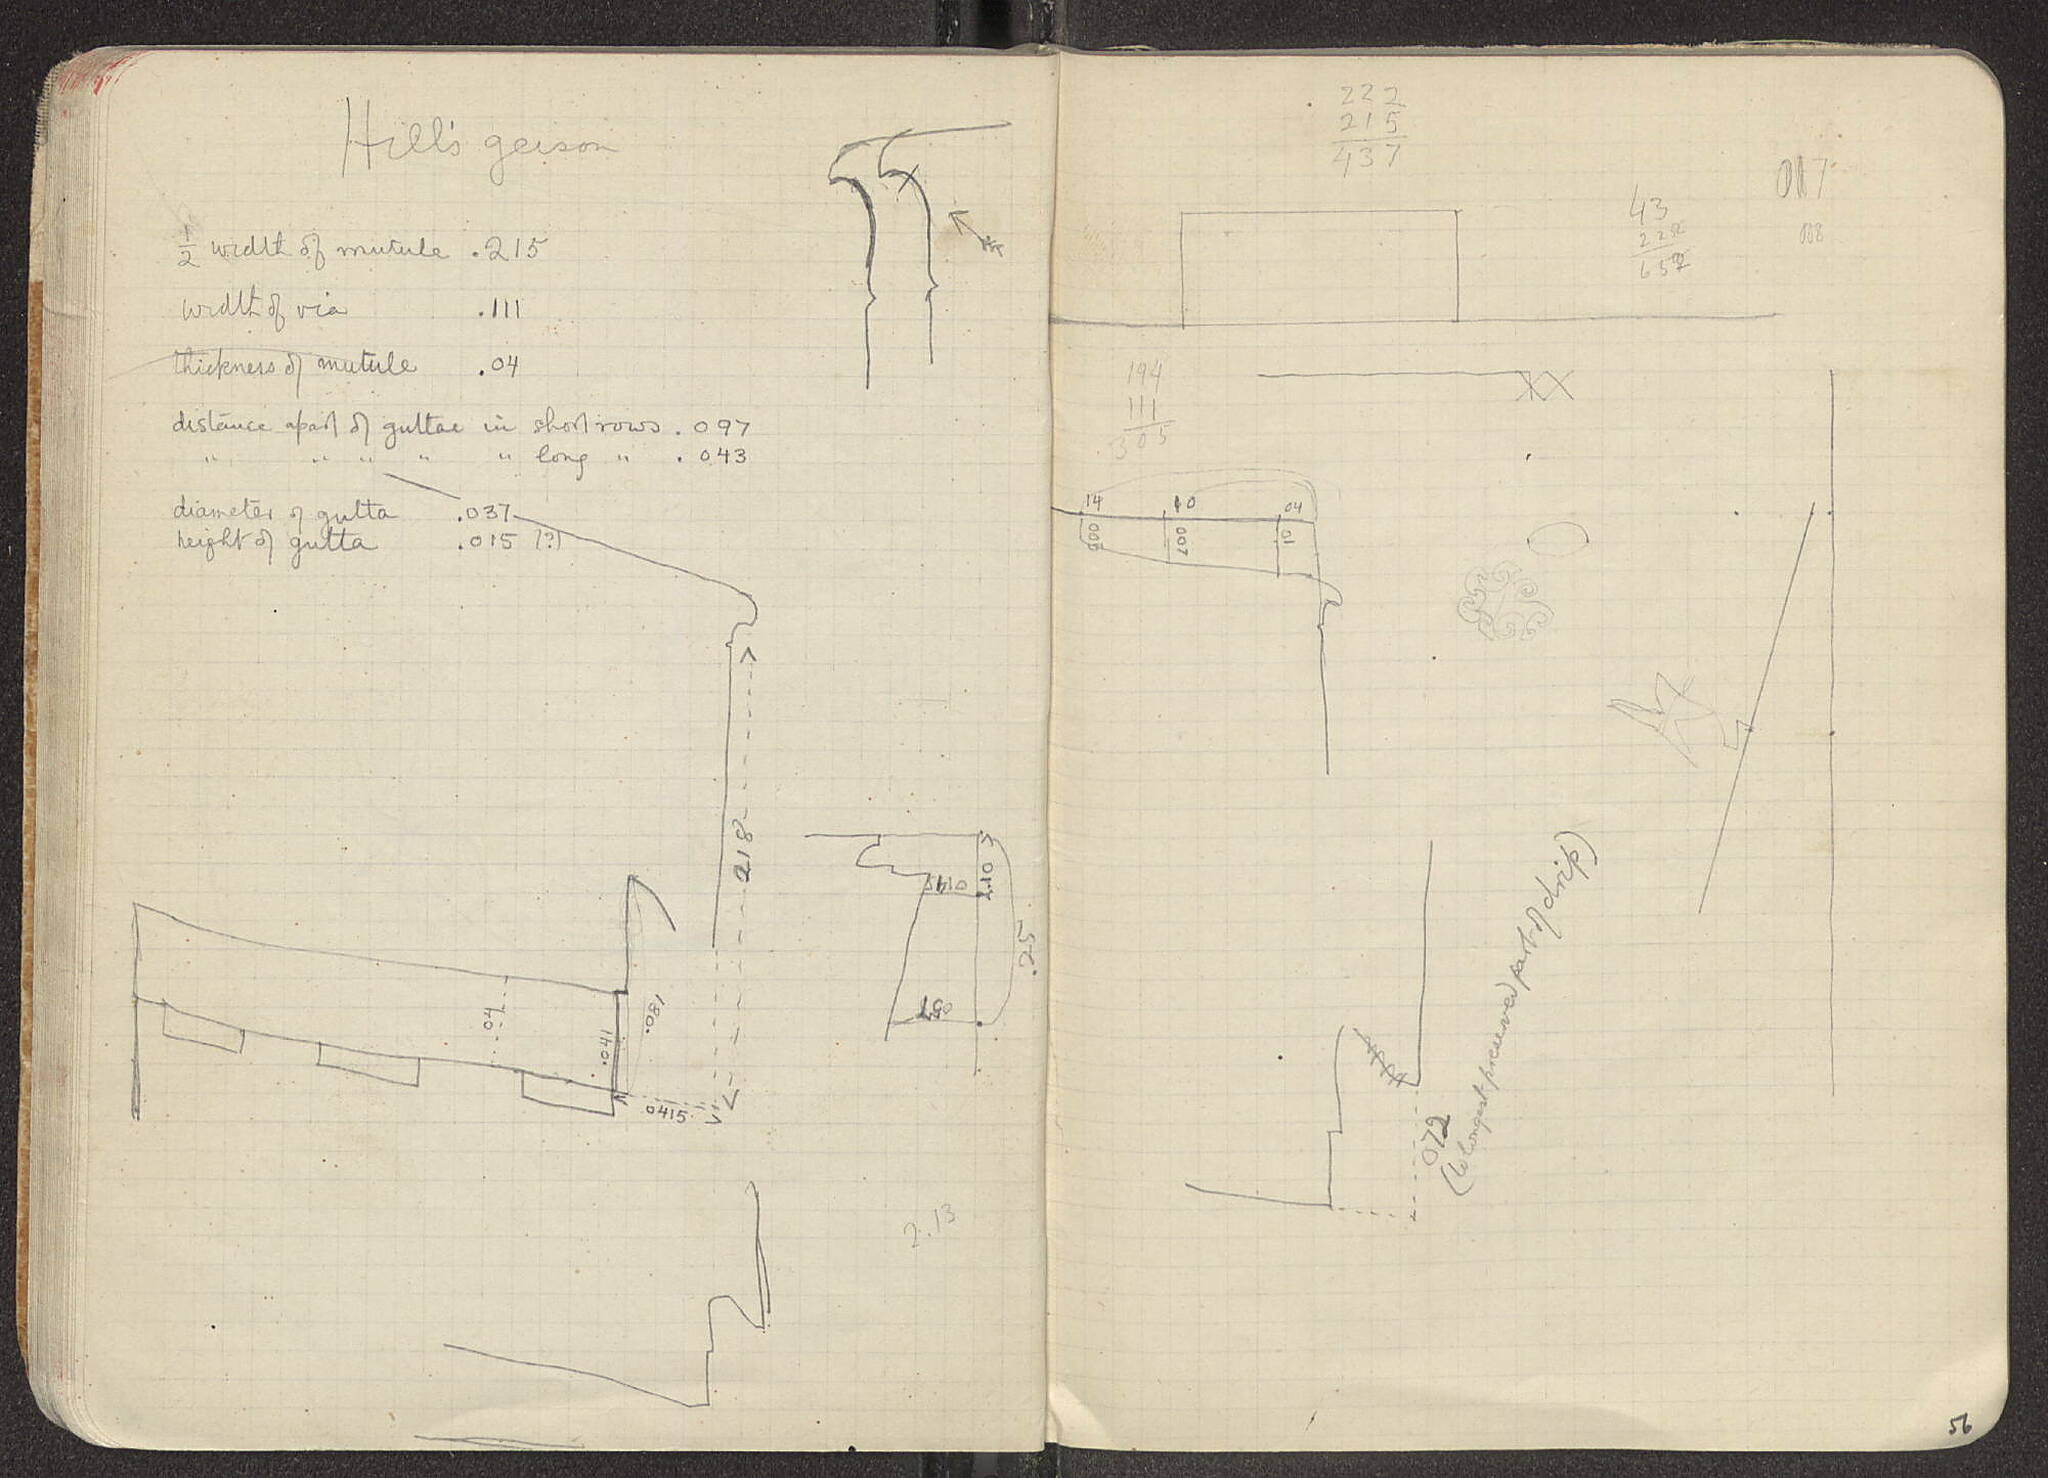 Hill's geison
1/2 width of mutule .215
width of via .111
thickness of mutule .04
distance apart of guttae in short rows .097
" " " " " long " .043
diameter of gutta .037
height of gutta .015 (?)
218
.04
.041
.081
0415
0145
017
.25
2.13
222
215
437
017
008
43
194
111
305
14
10
04
006
007
01
072
(to longest preserved part of drip)
56